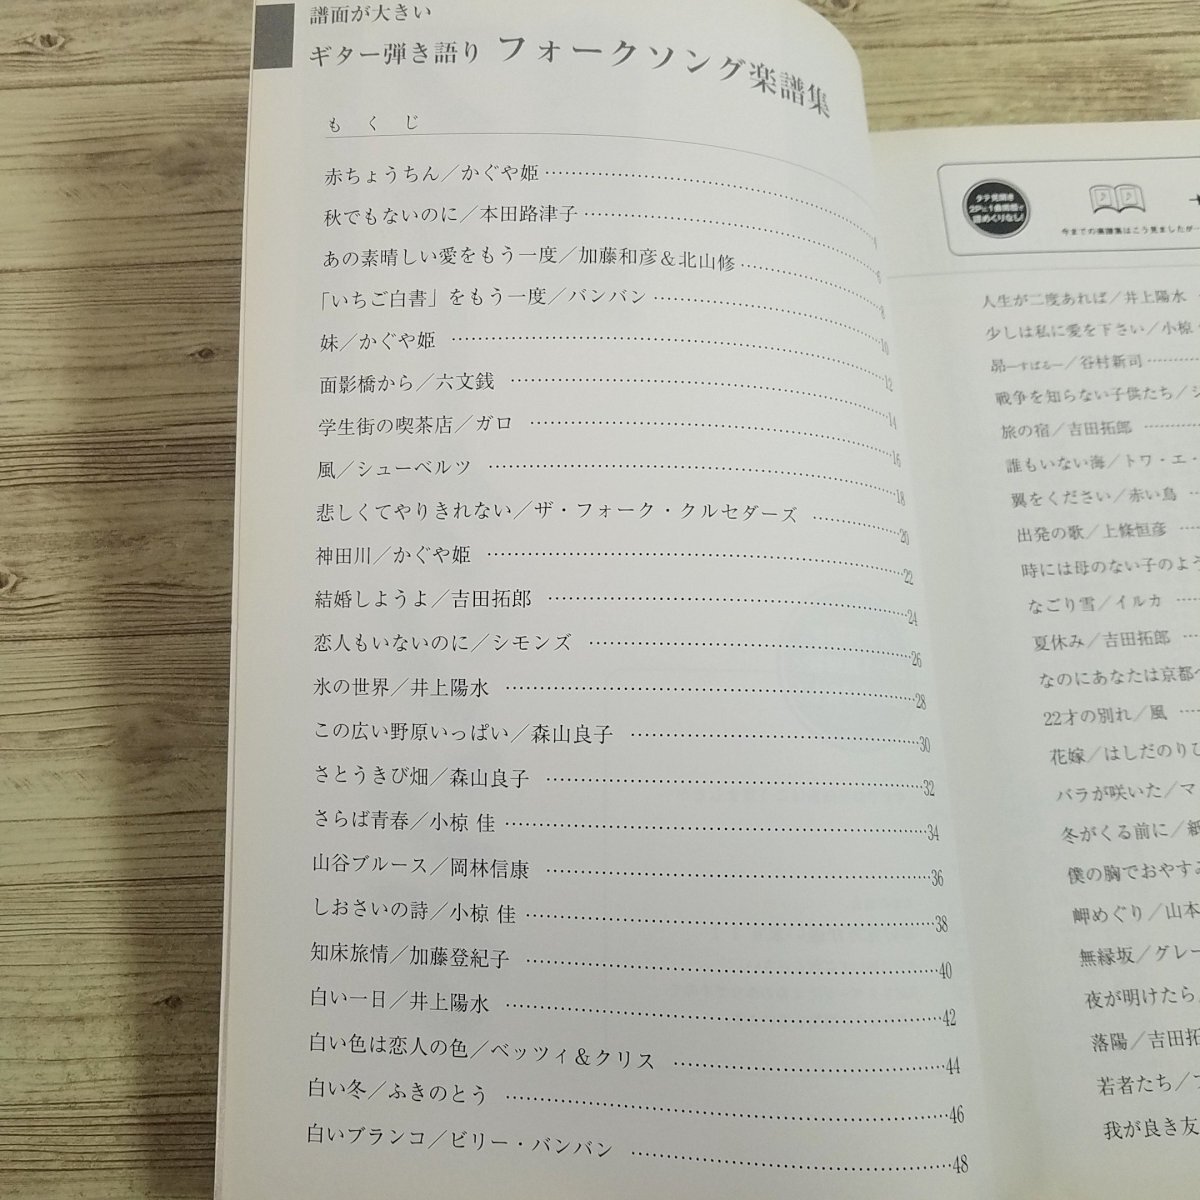 譜面が大きい
ギター弾き語り フォークソング楽譜集
もくじ
赤ちょうちん／かぐや姫 4
秋でもないのに／本田路津子 6
あの素晴しい愛をもう一度／加藤和彦＆北山修 8
「いちご白書」をもう一度／バンバン 10
妹／かぐや姫 12
面影橋から／六文銭 14
学生街の喫茶店／ガロ 16
風／シューベルツ 18
悲しくてやりきれない／ザ・フォーク・クルセダーズ 20
神田川／かぐや姫 22
結婚しようよ／吉田拓郎 24
恋人もいないのに／シモンズ 26
氷の世界／井上陽水 28
この広い野原いっぱい／森山良子 30
さとうきび畑／森山良子 32
さらば青春／小椋 佳 34
山谷ブルース／岡林信康 36
しおさいの詩／小椋 佳 38
知床旅情／加藤登紀子 40
白い一日／井上陽水 42
白い色は恋人の色／ベッツィ＆クリス 44
白い冬／ふきのとう 46
白いブランコ／ビリー・バンバン 48
タテ見開き
2Pに1曲掲載で
譜めくりなし！
今までの楽譜集はこう見ましたが…
人生が二度あれば／井上陽水
少しは私に愛を下さい／小椋
昴—すばる—／谷村新司
戦争を知らない子供たち／ジ
旅の宿／吉田拓郎
誰もいない海／トワ・エ・
翼をください／赤い鳥
出発の歌／上條恒彦
時には母のない子のよう
なごり雪／イルカ
夏休み／吉田拓郎
なのにあなたは京都へ
22才の別れ／風
花嫁／はしだのりひ
バラが咲いた／マ
冬がくる前に／紙
僕の胸でおやすみ
岬めぐり／山本
無縁坂／グレー
夜が明けたら
落陽／吉田拓
若者たち／
我が良き友